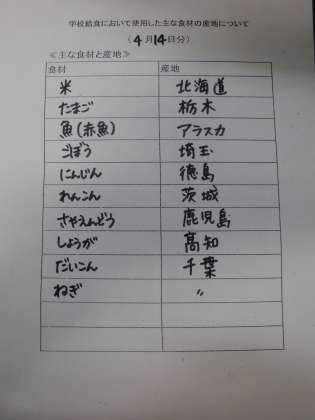 学校給食において使用した主な食材の産地について
(4月14日分)
≪主な食材と産地≫
食材 産地
米 北海道
たまご 栃木
魚(赤魚) アラスカ
ごぼう 埼玉
にんじん 徳島
れんこん 茨城
さやえんどう 鹿児島
しょうが 高知
だいこん 千葉
ねぎ 〃